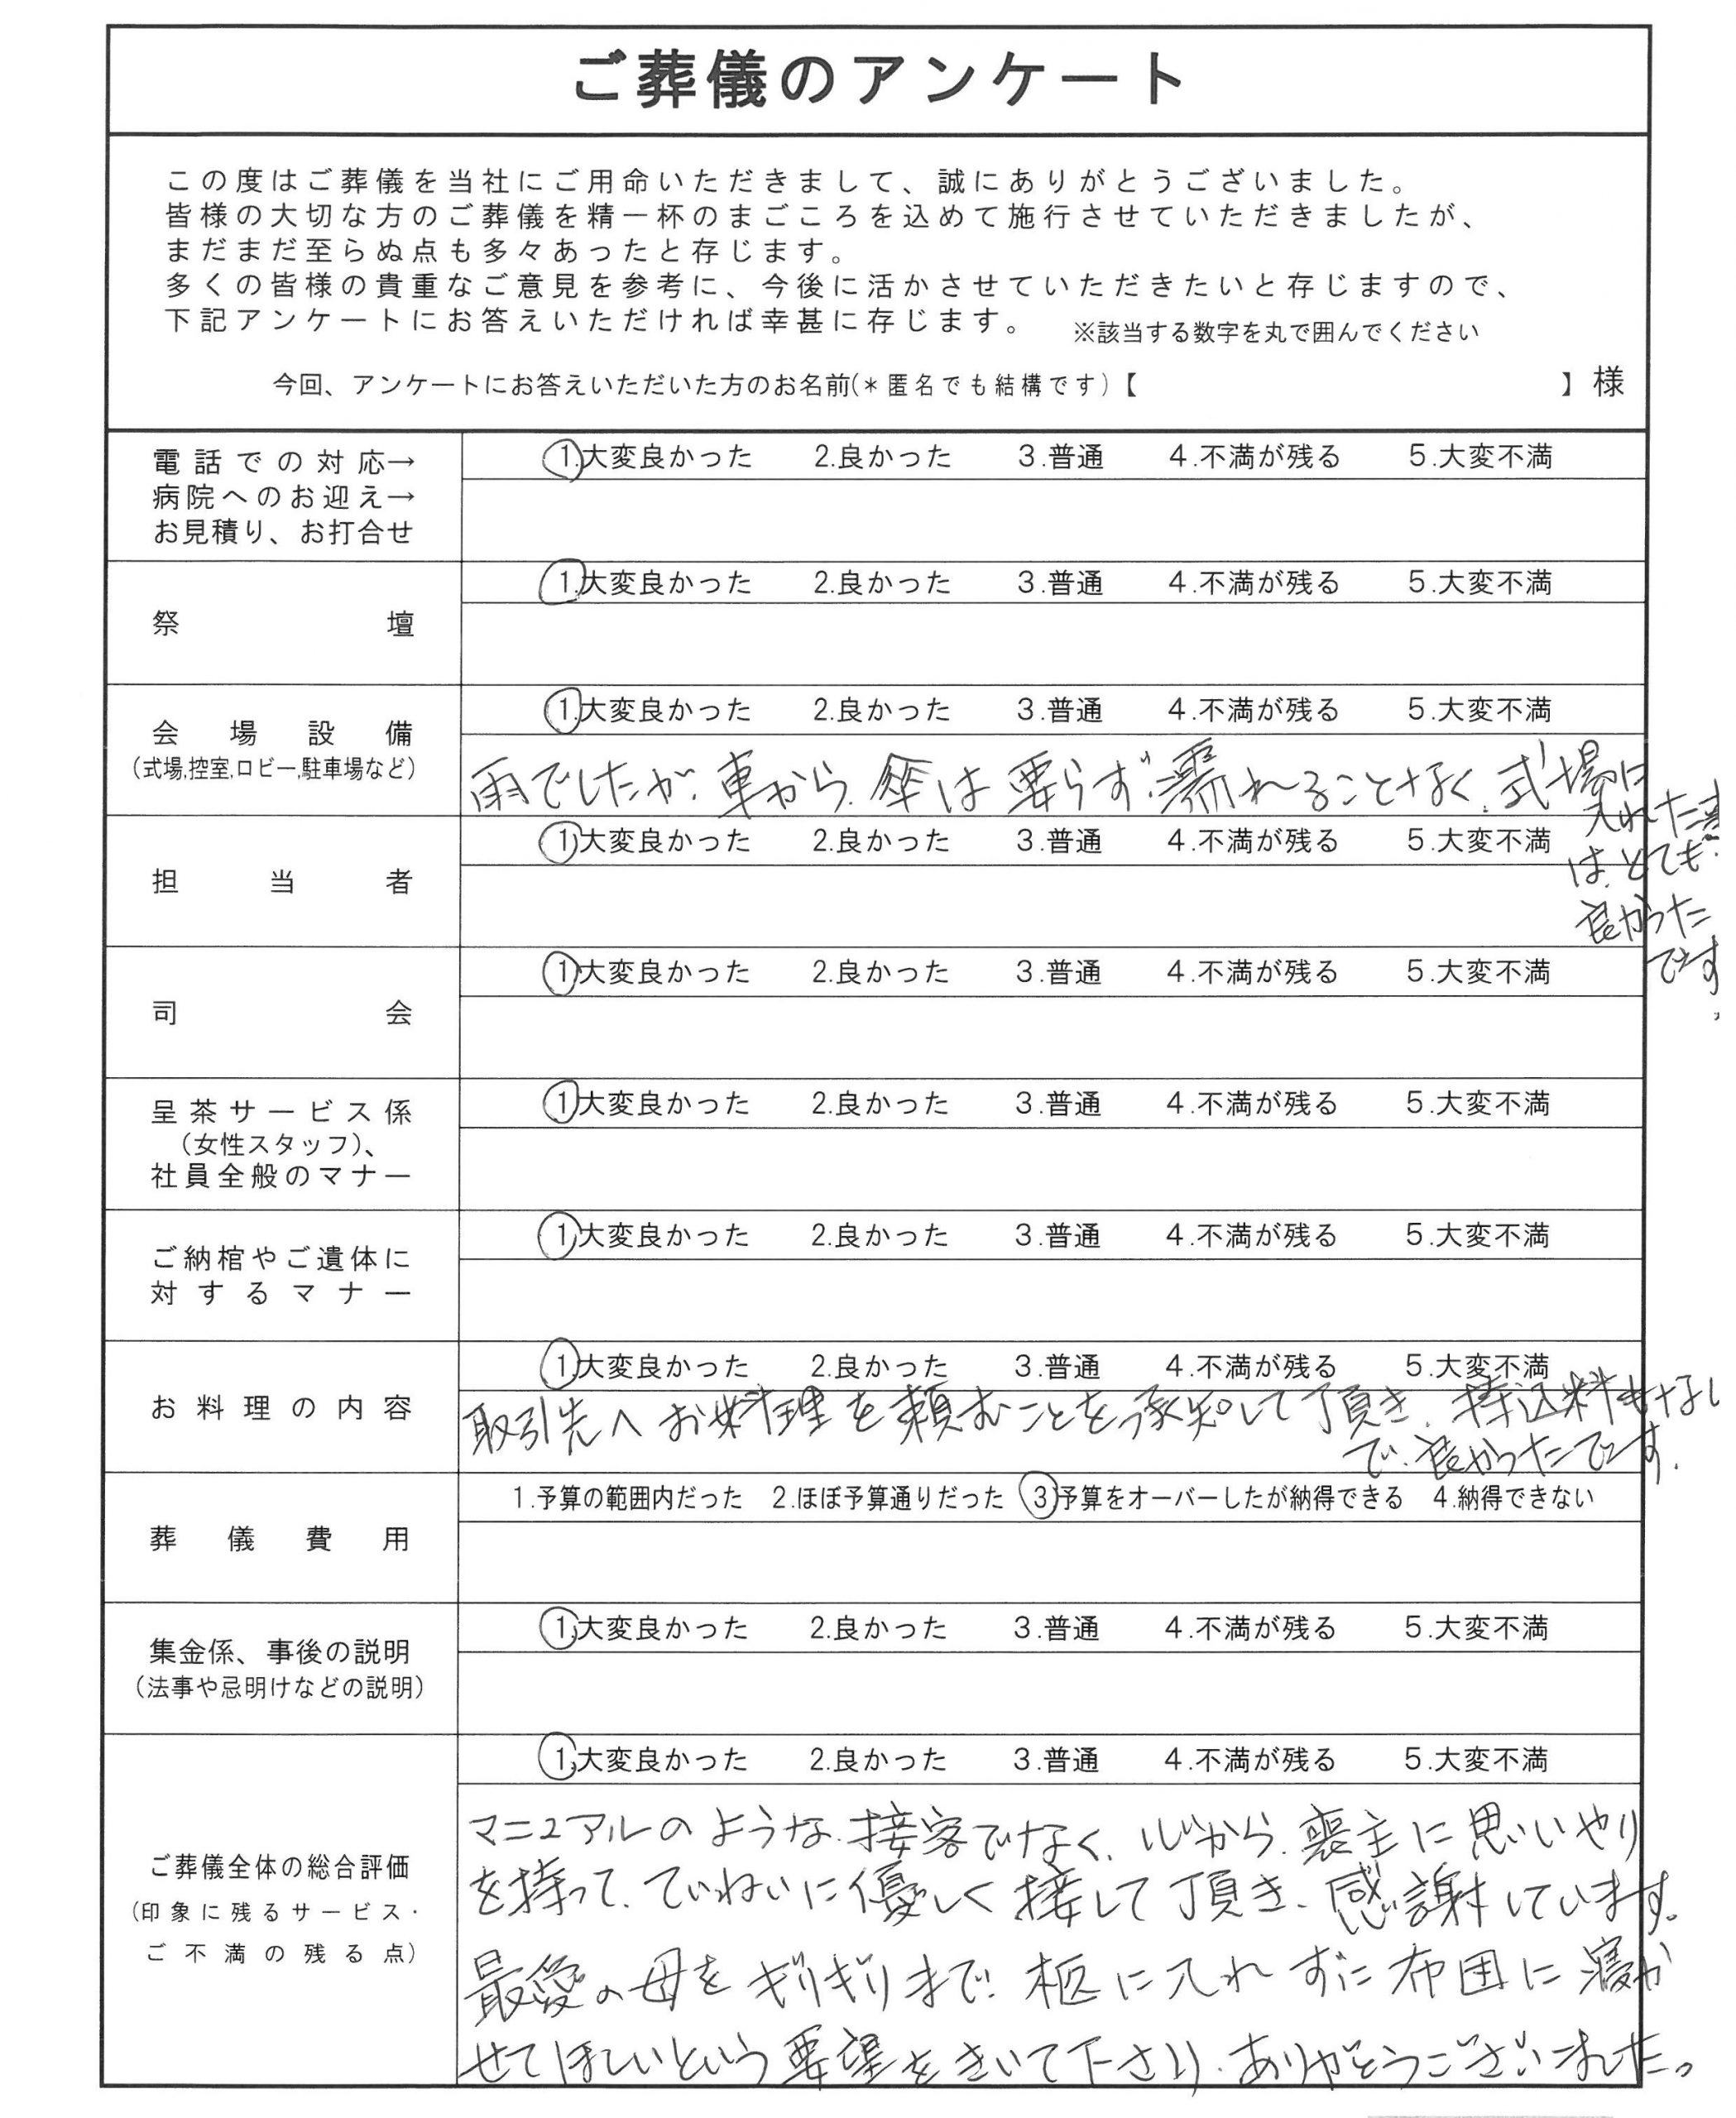 ご葬儀のアンケート
この度はご葬儀を当社にご用命いただきまして、誠にありがとうございました。
皆様の大切な方のご葬儀を精一杯のまごころを込めて施行させていただきましたが、
まだまだ至らぬ点も多々あったと存じます。
多くの皆様の貴重なご意見を参考に、今後に活かさせていただきたいと存じますので、
下記アンケートにお答えいただければ幸甚に存じます。 ※該当する数字を丸で囲んでください
今回、アンケートにお答えいただいた方のお名前(*匿名でも結構です)【 】様
電話での対応→
病院へのお迎え→
お見積り、お打合せ
1.大変良かった 2.良かった 3.普通 4.不満が残る 5.大変不満
祭壇
1.大変良かった 2.良かった 3.普通 4.不満が残る 5.大変不満
会場設備
(式場,控室,ロビー,駐車場など)
1.大変良かった 2.良かった 3.普通 4.不満が残る 5.大変不満
雨でしたが、車から、傘は要らず、濡れることなく、式場に
入れた事
は、とても
良かった
です。
担当者
1.大変良かった 2.良かった 3.普通 4.不満が残る 5.大変不満
司会
1.大変良かった 2.良かった 3.普通 4.不満が残る 5.大変不満
呈茶サービス係
(女性スタッフ)、
社員全般のマナー
1.大変良かった 2.良かった 3.普通 4.不満が残る 5.大変不満
ご納棺やご遺体に
対するマナー
1.大変良かった 2.良かった 3.普通 4.不満が残る 5.大変不満
お料理の内容
1.大変良かった 2.良かった 3.普通 4.不満が残る 5.大変不満
取引先へお料理を頼むことを承知して頂き、持込料もなし
で、良かったです。
葬儀費用
1.予算の範囲内だった 2.ほぼ予算通りだった 3.予算をオーバーしたが納得できる 4.納得できない
集金係、事後の説明
(法事や忌明けなどの説明)
1.大変良かった 2.良かった 3.普通 4.不満が残る 5.大変不満
ご葬儀全体の総合評価
(印象に残るサービス・
ご不満の残る点)
1.大変良かった 2.良かった 3.普通 4.不満が残る 5.大変不満
マニュアルのような接客でなく、心から、喪主に思いやり
を持って、ていねいに優しく接して頂き、感謝しています。
最愛の母をギリギリまで、柩に入れずに布団に寝か
せてほしいという要望をきいて下さり、ありがとうございました。